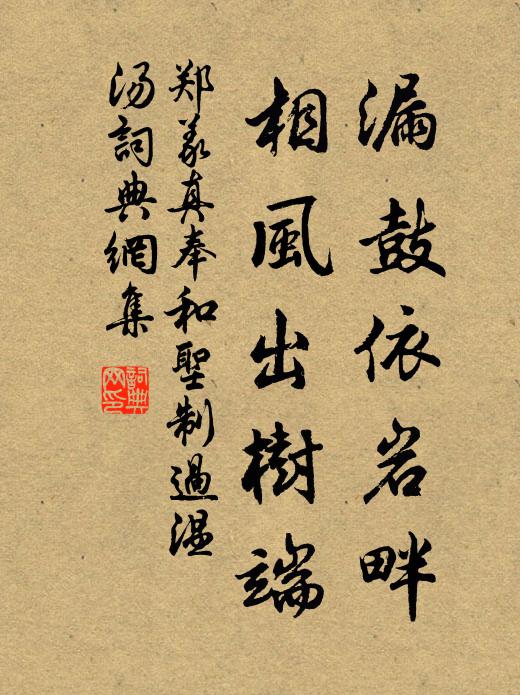 漏鼓依岩畔
相風出樹端
郑義真奉和聖制過温
湯詞典網集
詞典
网印